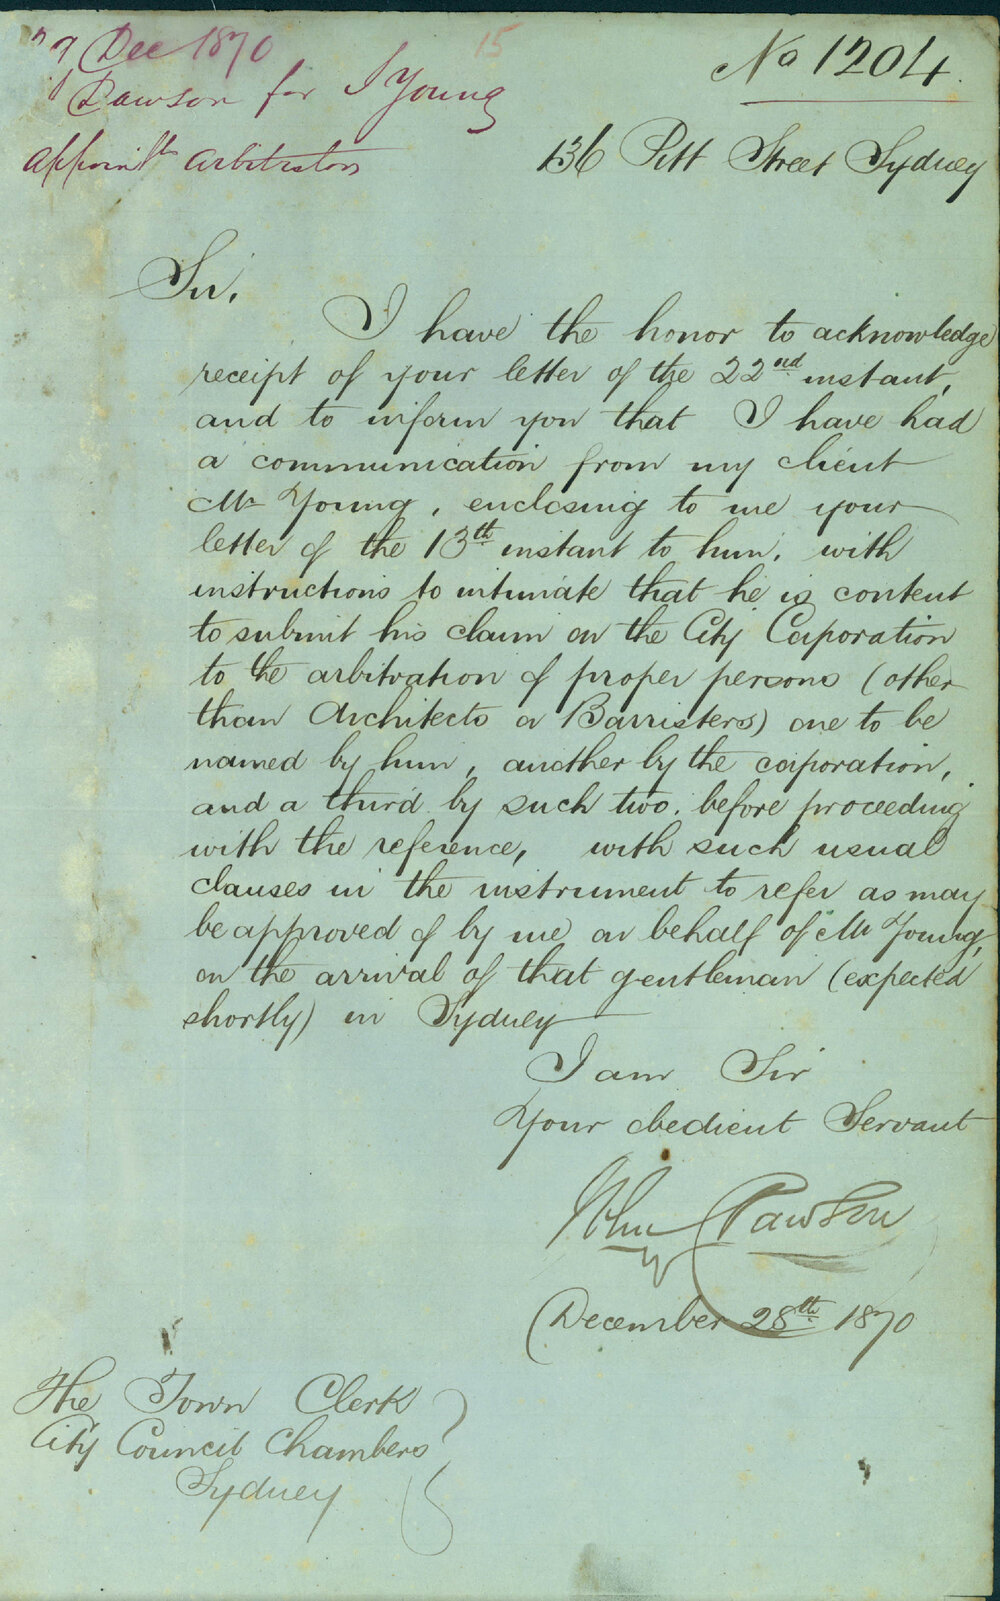 29 Dec 1870
15
No 1204.
Dawson for J Young
appoint^g arbitrators
136 Pitt Street Sydney
Sir,
I have the honor to acknowledge
receipt of your letter of the 22nd instant,
and to inform you that I have had
a communication from my client
Mr Young, enclosing to me your
letter of the 13th instant to him, with
instructions to intimate that he is content
to submit his claim on the City Corporation
to the arbitration of proper persons (other
than Architects or Barristers) one to be
named by him, another by the corporation,
and a third by such two, before proceeding
with the reference, with such usual
clauses in the instrument to refer as may
be approved of by me on behalf of Mr Young,
on the arrival of that gentleman (expected
shortly) in Sydney
I am Sir
Your obedient Servant
John Dawson
December 28th 1870
The Town Clerk
City Council Chambers
Sydney